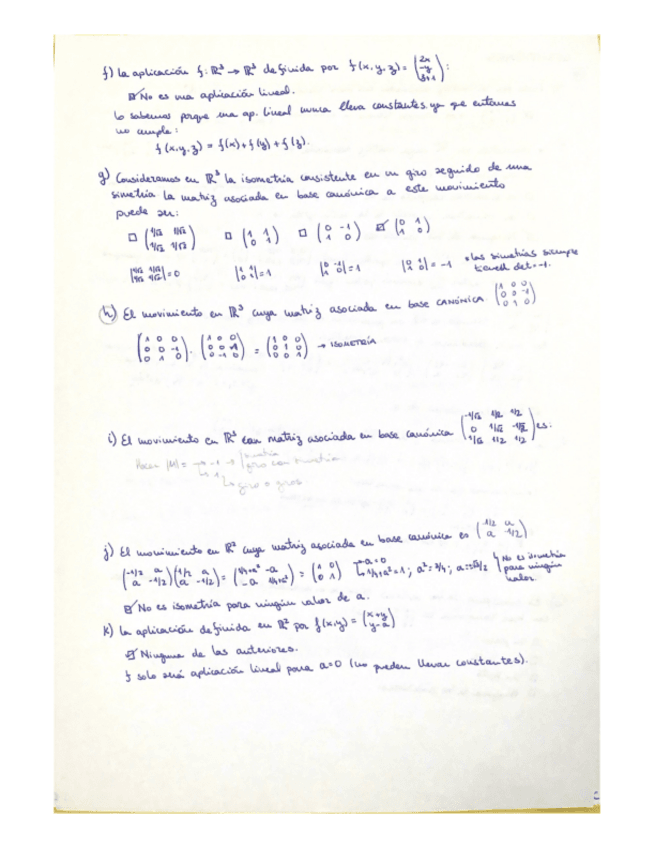 f) La aplicación f: ℝ³ → ℝ³ definida por f(x,y,z) = (2x / -y / z+1) :
☑ No es una aplicación lineal.
Lo sabemos porque una ap. lineal nunca lleva constantes ya que entonces
no cumple:
f(x,y,z) = f(x)+f(y)+f(z).
g) Consideramos en ℝ³ la isometría consistente en un giro seguido de una
simetría la matriz asociada en base canónica a este movimiento
puede ser:
☐ (1/√2 1/√2 / 1/√2 1/√2) ☐ (1 1 / 0 1) ☐ (0 -1 / 1 0) ☑ (0 1 / 1 0)
|1/√2 1/√2 / 1/√2 1/√2| = 0 |1 1 / 0 1| = 1 |0 -1 / 1 0| = 1 |0 1 / 1 0| = -1 • las simetrías siempre
tienen det = -1.
h) El movimiento en ℝ³ cuya matriz asociada en base CANÓNICA (1 0 0 / 0 0 -1 / 0 1 0)
(1 0 0 / 0 0 -1 / 0 1 0) · (1 0 0 / 0 0 1 / 0 -1 0) = (1 0 0 / 0 1 0 / 0 0 1) → ISOMETRÍA
i) El movimiento en ℝ³ con matriz asociada en base canónica (-1/√2 1/2 1/2 / 0 1/√2 -1/√2 / 1/√2 1/2 1/2) es:
Hacer |M| = → -1 → simetría
giro con simetría
→ 1
↳ giro o giros
j) El movimiento en ℝ² cuya matriz asociada en base canónica es (-1/2 a / a -1/2)
(-1/2 a / a -1/2)(-1/2 a / a -1/2) = (1/4+a² -a / -a 1/4+a²) = (1 0 / 0 1) → -a=0
↳ 1/4+a²=1; a²=3/4; a=±√3/2 No es isometría
para ningún
valor.
☑ No es isometría para ningún valor de a.
k) La aplicación definida en ℝ² por f(x,y) = (x+y / y-a)
☑ Ninguna de las anteriores.
f solo será aplicación lineal para a=0 (no pueden llevar constantes).